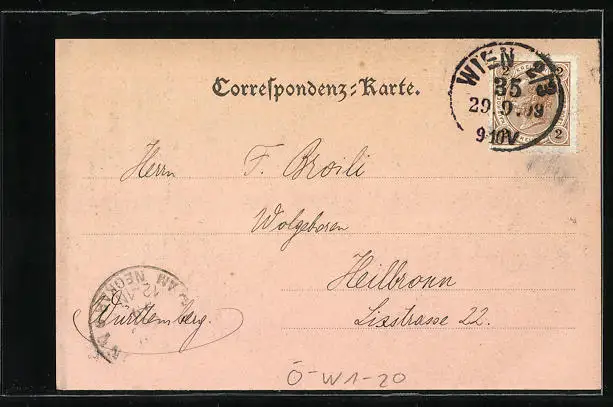 Correspondenz-Karte.
WIEN 2/3
35
29.9.99
9-10V
2 2
2
Herrn F. Broili
Wolgeboren
Heilbronn
Lixstrasse 22.
Württemberg.
AM NECKAR
12-1N
Ö-W1-20